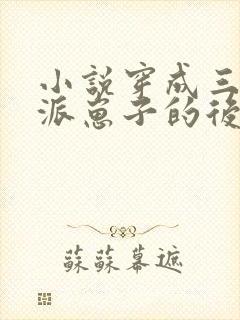 小說穿成三
派崽子的後
蘇蘇幕遮